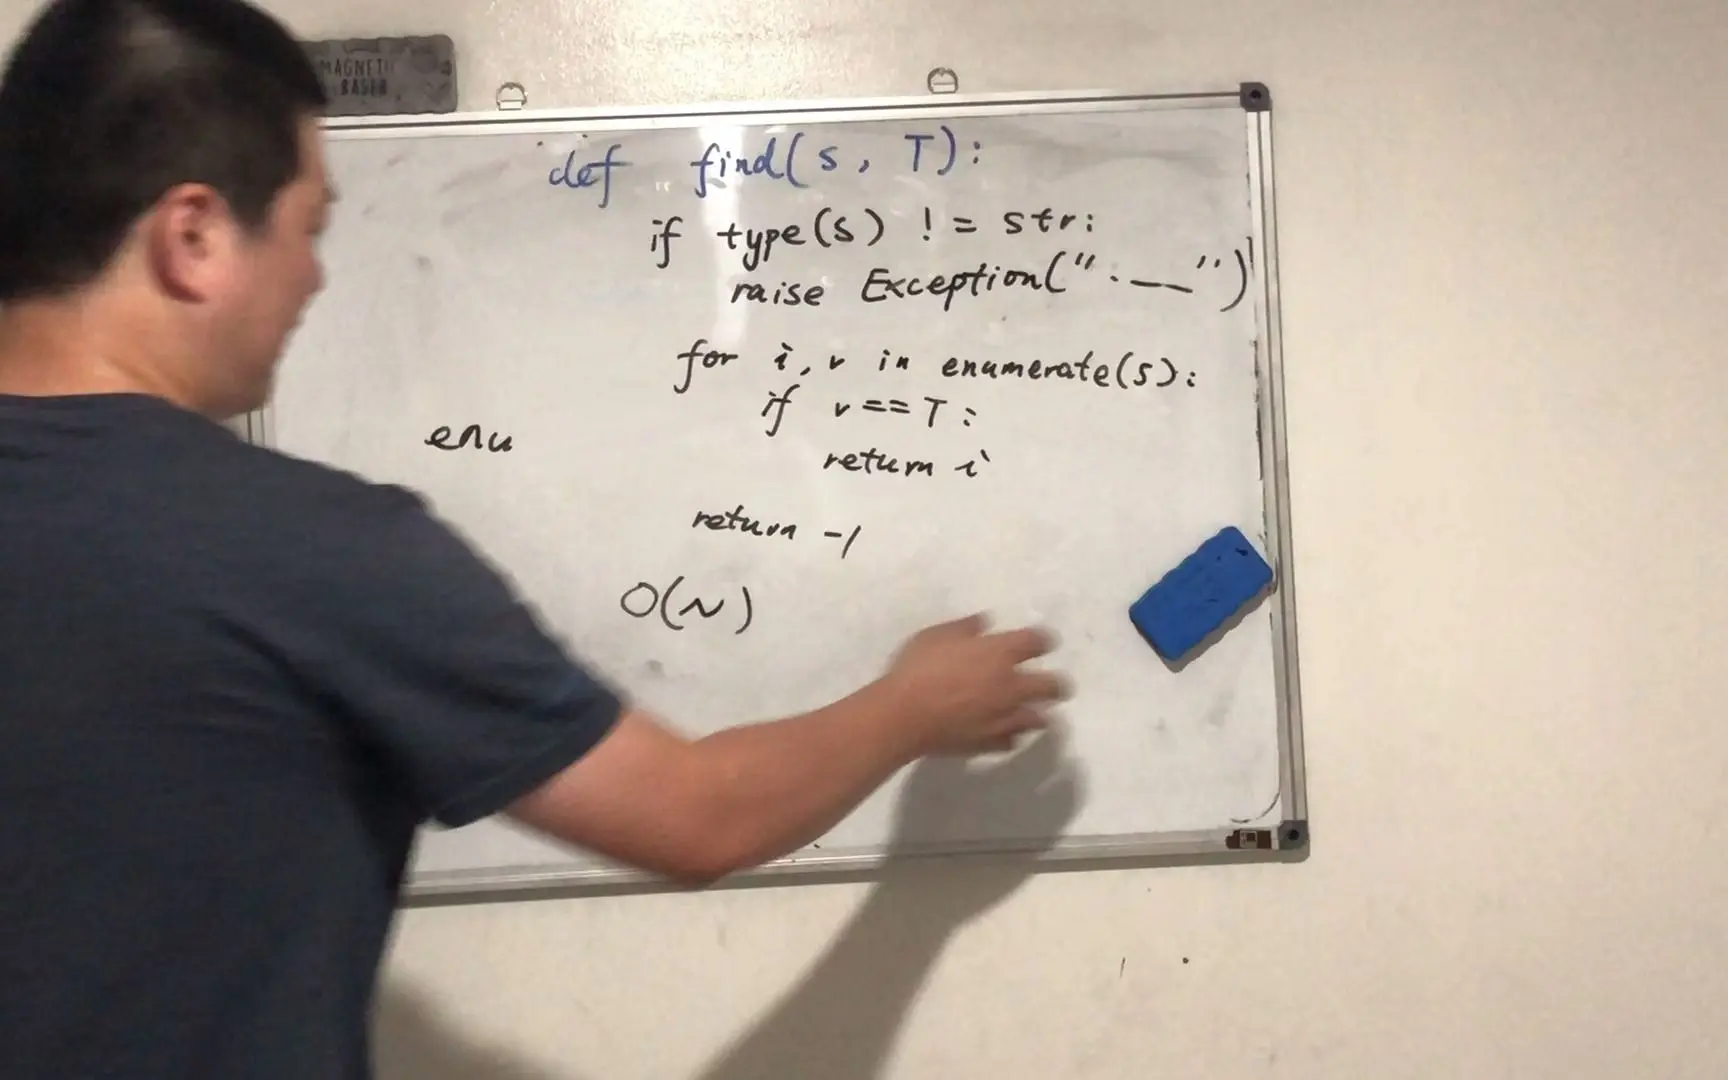 MAGNETI
RASER
def find(s, T):
if type(s) != str:
raise Exception(“.__”)
for i, v in enumerate(s):
if v == T:
return i
enu
return -1
O(N)